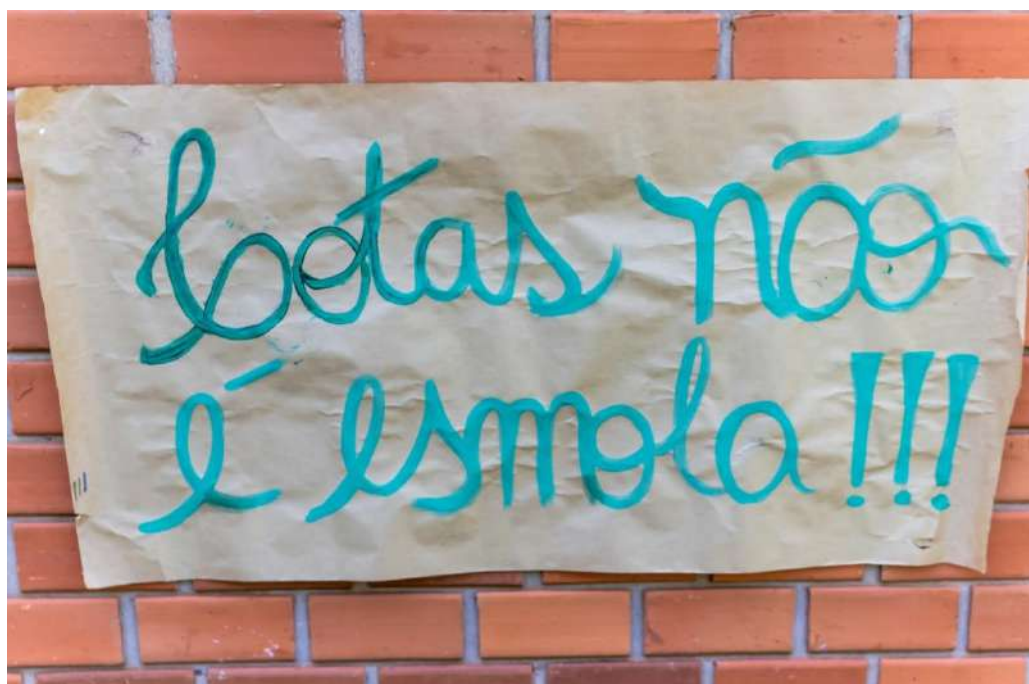 Cotas não
é esmola!!!